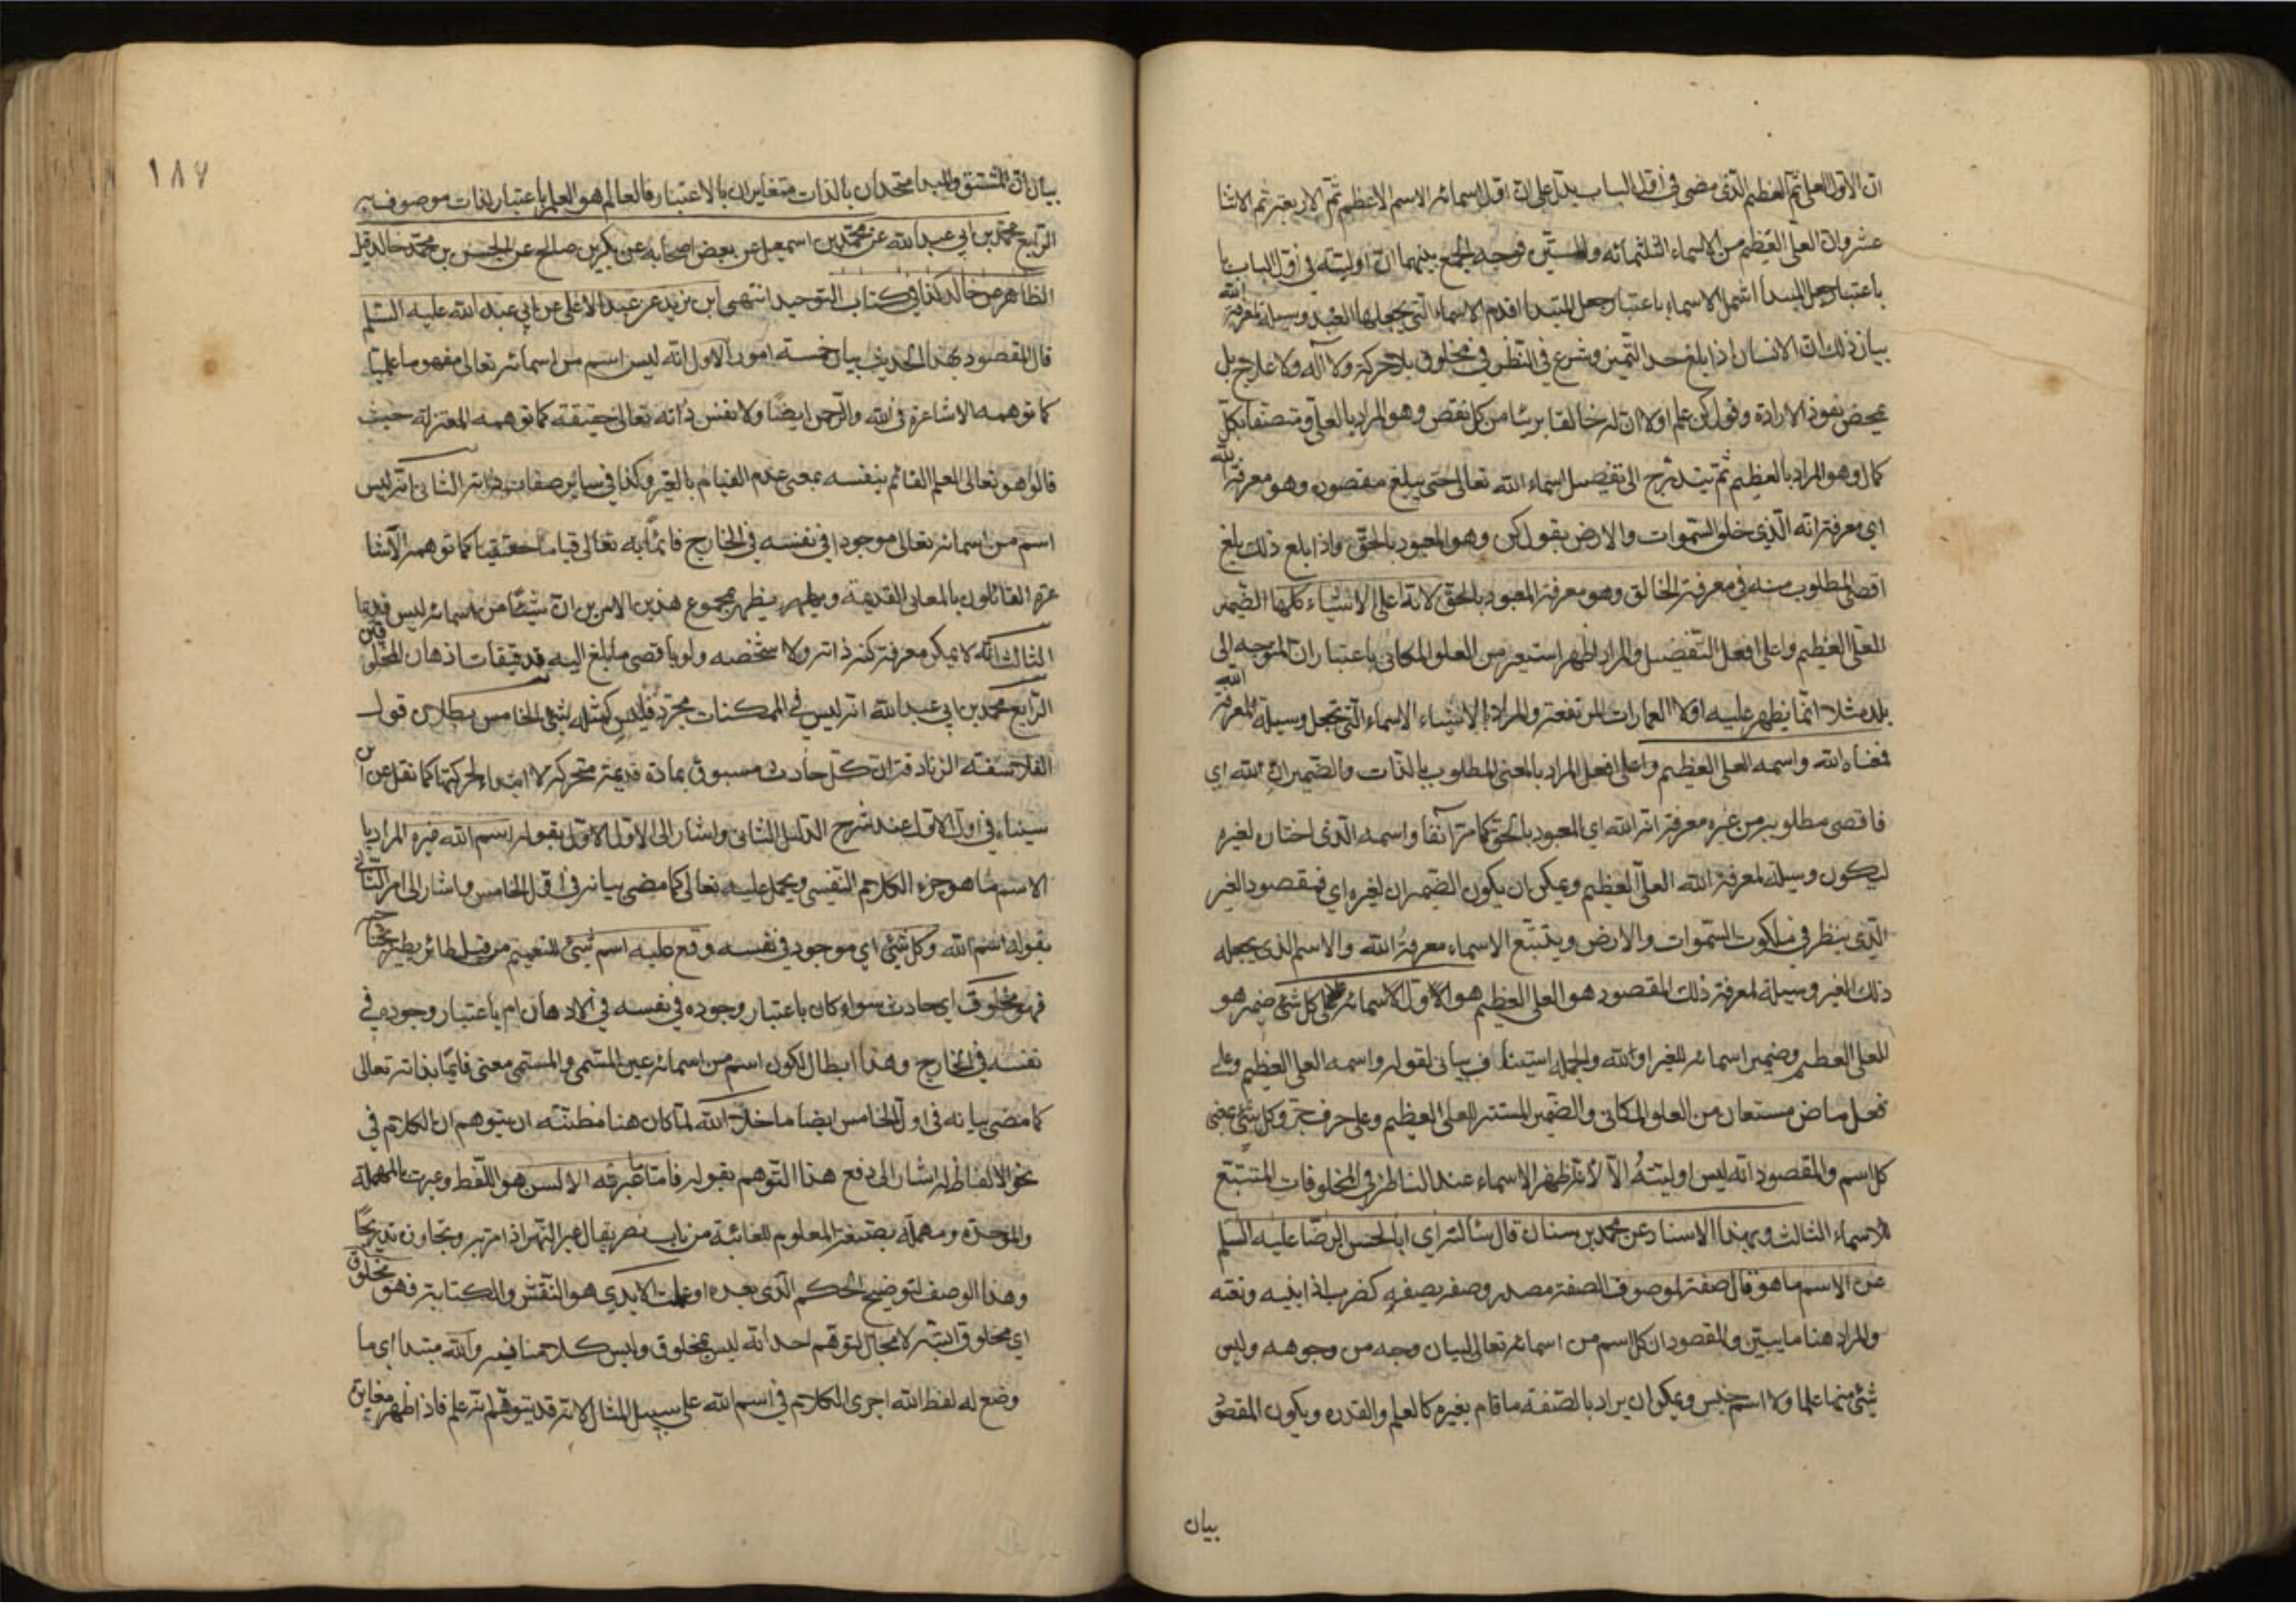 ان الاول العلي ثم العظيم الذي مضى في اول الباب يدل على ان اول اسمائه الاسم الاعظم ثم الاربعة ثم الاثنا
عشر وان العلي العظيم من الاسماء الثلثمائة والستين فوجه الجمع بينهما ان اوليته في اول الباب
باعتبار جعل المبدأ اشمل الاسماء باعتبار جعل المبتدا اقدم الاسماء التي يجعلها العبد وسيلة لمعرفة الله
بيان ذلك ان الانسان اذا بلغ حد التميز وشرع في النظر في مخلوق بلا حركة ولا آلة ولا علاج بل
بمحض نفوذ الارادة وقول كن علم اولا ان له خالقا بريئا من كل نقص وهو المراد بالعلي ومتصفا بكل
كمال وهو المراد بالعظيم ثم يتدرج الى تفصيل اسماء الله تعالى حتى يبلغ مقصوده وهو معرفة الله
اي معرفة انه الذي خلق السموات والارض بقول كن وهو المعبود بالحق واذا بلغ ذلك بلغ
اقصى المطلوب منه في معرفة الخالق وهو معرفة المعبود بالحق لانه اعلى الاشياء كلها الضمير
للعلي العظيم واعلى افعل التفضيل والمراد اظهر استعير من العلو المكاني باعتبار ان المتوجه الى
بلد مثلا انما يظهر عليه اولا العمارات المرتفعة والمراد بالاشياء الاسماء التي تجعل وسيلة لمعرفة الله
فمعناه الله واسمه العلي العظيم واعلى افعل المراد بالمعنى المطلوب بالذات والضميران لله اي
فاقصى مطلوبه من غيره معرفة انه الله اي المعبود بالحق كما مر آنفا واسمه الذي اختاره لغيره
ليكون وسيلة لمعرفة الله العلي العظيم ويمكن ان يكون الضميران لغيره اي فمقصود الغير
الذي ينظر في ملكوت السموات والارض ويتتبع الاسماء معرفة الله والاسم الذي يجعله
ذلك الغير وسيلة لمعرفة ذلك المقصود هو العلي العظيم هو الاول لاسمائه على كل شئ ضمير هو
للعلي العظيم وضمير اسمائه للغير او لله والجملة استيناف بياني لقوله واسمه العلي العظيم وعلى
فعل ماض مستعار من العلو المكاني والضمير المستتر للعلي العظيم وعلى حرف جر وكل شئ بمعنى
كل اسم والمقصود انه ليس اوليته الا لانه اظهر الاسماء عند الناظر في المخلوقات المتتبع
للاسماء الثالث وبهذا الاسناد عن محمد بن سنان قال سألته اي ابا الحسن الرضا عليه السلم
عن الاسم ما هو قال صفة لموصوف الصفة مصدر وصفه يصفه كضرب اذا بينه ونعته
والمراد هنا ما يبين والمقصود ان كل اسم من اسمائه تعالى لبيان وجه من وجوهه وليس
شئ منها علما ولا اسم جنس ويمكن ان يراد بالصفة ما قام بغيره كالعلم والقدرة ويكون المقصود
بيان
١٨٧
بيان ان المشتق والمبدا متحدان بالذات متغايران بالاعتبار فالعالم هو العلم باعتبار لذات موصوف به
الرابع محمد بن ابي عبد الله عن محمد بن اسمعيل عن بعض اصحابه عن بكر بن صالح عن الحسن بن محمد خالد قيل
الظاهر عن خالد كذا في كتاب التوحيد انتهى ابن يزيد عن عبد الاعلى عن ابي عبد الله عليه السلم
قال المقصود بهذا الحديث بيان خمسة امور الاول انه ليس اسم من اسمائه تعالى مفهوما علميا
كما توهمه الاشاعرة في الله والرحمن ايضا ولا نفس ذاته تعالى حقيقة كما توهمه المعتزلة حيث
قالوا هو تعالى العلم القائم بنفسه بمعنى عدم القيام بالغير وكذا في سائر صفات ذاته الثاني انه ليس
اسم من اسمائه تعالى موجودا في نفسه في الخارج قائما به تعالى قياما حقيقيا كما توهمه الاشا
عرة القائلون بالمعاني القديمة يظهر بمجموع هذين الامرين ان شيئا من اسمائه ليس قديما
الثالث انه لا يمكن معرفة كنه ذاته ولا شخصه ولو باقصى ما بلغ اليه تدقيقات اذهان المخلوقين
الرابع محمد بن ابي عبد الله انه ليس في الممكنات مجرد فليس كمثله شئ الخامس بطلان قول
الفلاسفة الزنادقة ان كل حادث مسبوق بمادة قديمة متحركة لا ابتداء لحركتها كما نقل عن ابن
سيناء في اول الاول عند شرح الدليل الثاني واشار الى الاول الاول بقوله اسم الله غيره المراد با
الاسم ما هو جزء الكلام النفسي ويحمل عليه تعالى كما مضى بيانه في اول الخامس واشار الى امر الثاني
بقوله اسم الله وكل شئ اي موجود في نفسه وقع عليه اسم شئ للتعميم من قبيل طائر يطير بجناحيه
فهو مخلوق اي حادث سواء كان باعتبار وجوده في نفسه في الاذهان ام باعتبار وجوده في
نفسه في الخارج وهذا ابطال لكون اسم من اسمائه عين المسمى والمسمى معنى قائما بذاته تعالى
كما مضى بيانه في اول الخامس ايضا ما خلا الله لما كان هنا مظنة ان يتوهم ان الكلام في
نحو الالفاظ اشار الى دفع هذا التوهم بقوله فاما ما عبرته الالسن هو اللفظ وعبرت بالمهملة
والموحدة ومهملة بصيغة المعلوم للغائبة من باب نصر يقال عبر النهر اذا مر به وتجاوزه تدريجا
وهذا الوصف لتوضيح الحكم الذي بعده او عملت الايدي هو النقش والكتابة فهو مخلوق
اي مخلوق البتة لا مجال لتوهم احد انه ليس بمخلوق وليس كلامنا فيه والله مبتدا اي ما
وضع له لفظ الله اجرى الكلام في اسم الله على سبيل المثال لانه قد يتوهم انه علم فاذا ظهر مغايرة